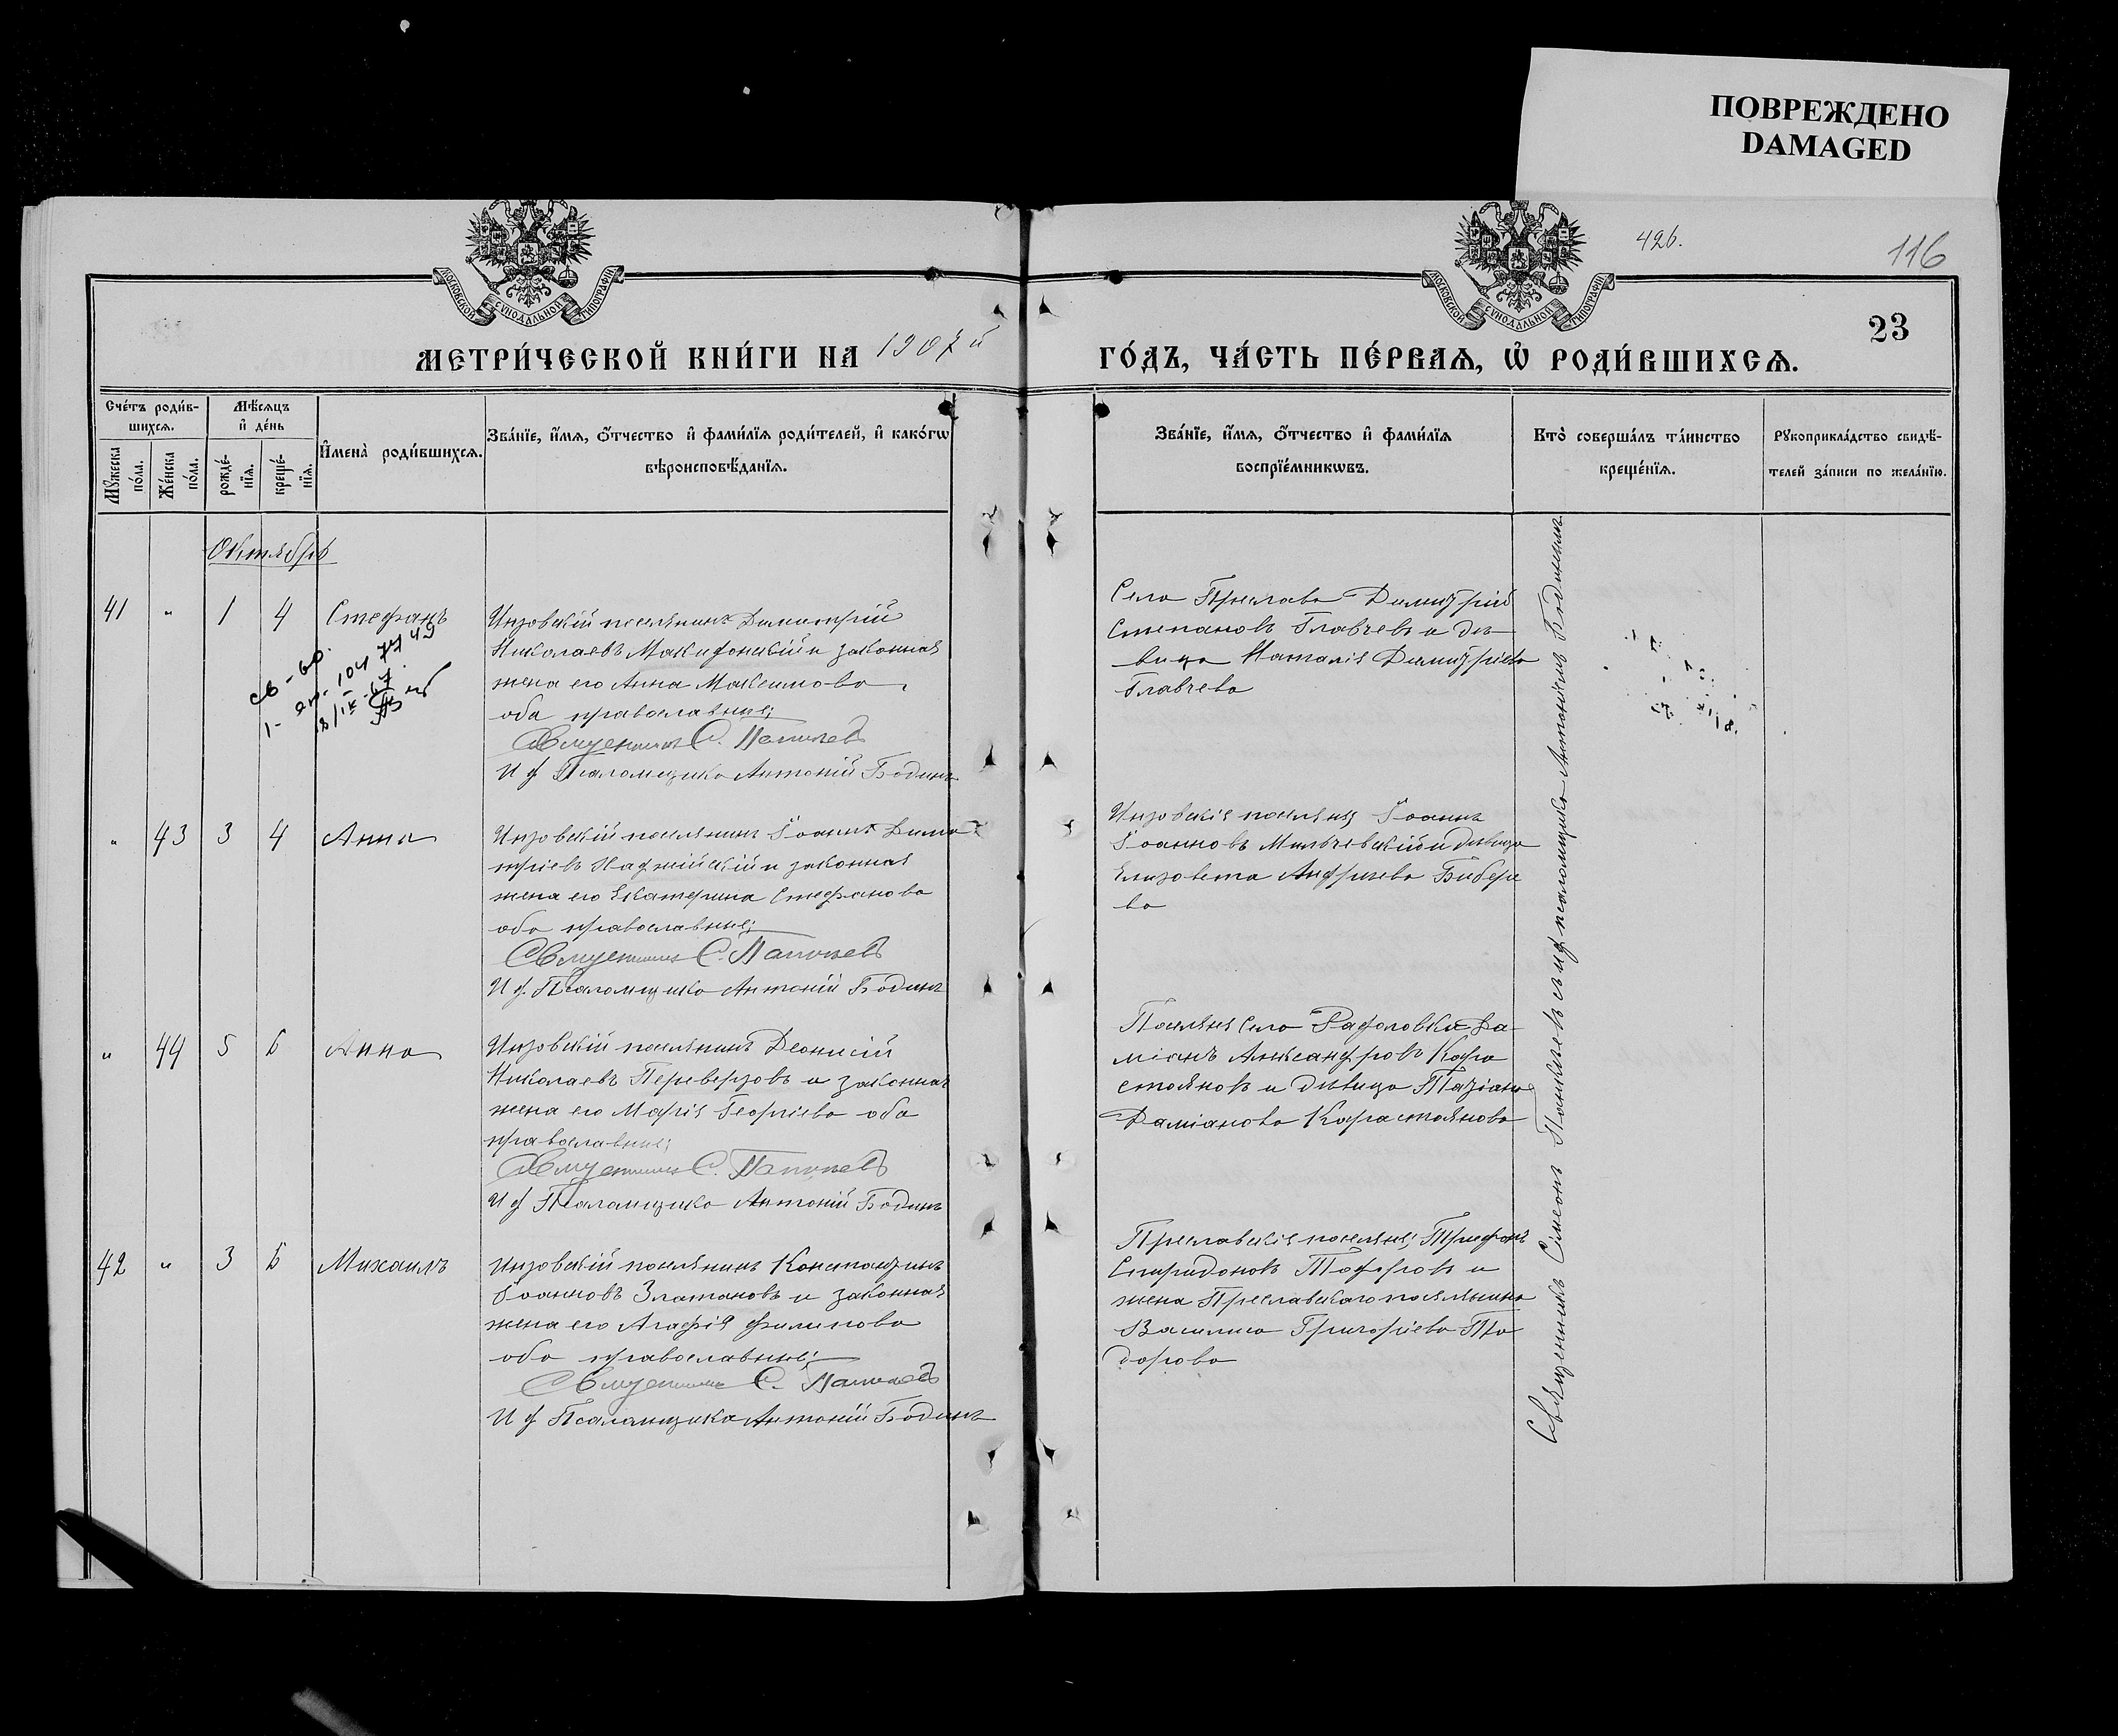 ПОВРЕЖДЕНО
DAMAGED
426.
116
МОСКОВСКОЙ СѴНОДАЛЬНОЙ ТИПОГРАФІИ
МОСКОВСКОЙ СѴНОДАЛЬНОЙ ТИПОГРАФІИ
23
МЕТРИ́ЧЕСКОЙ КНИ́ГИ НА 1907 й
ГО́ДЪ, ЧА́СТЬ ПЕ́РВАѦ, Ѽ РОДИ́ВШИХСѦ.
Сче́тъ роди́в-
шихсѧ.
Мꙋ́жеска по́ла.
Же́нска по́ла.
Мѣ́сѧцъ
и҆ де́нь
рожде́-
нїѧ.
креще́-
нїѧ.
И҆мена̀ роди́вшихсѧ.
Зва́нїе, и҆́мѧ, ѻ҆́тчество и҆ фами́лїѧ роди́телей, и҆ како́гѡ
вѣроисповѣ́данїѧ.
Зва́нїе, и҆́мѧ, ѻ҆́тчество и҆ фами́лїѧ
воспрїе́мникѡвъ.
Кто̀ соверша́лъ та́инство
креще́нїѧ.
Рꙋкоприкла́дство свидѣ́-
телей за́писи по жела́нїю.
Октябрь
41 " 1 4 Стефанъ
Инзовскій поселянинъ Димитрій
Николаевъ Македонскій и законная
жена его Анна Максимова
оба православные;
Священникъ С. Папичевъ
И д Псаломщика Антоній Бодинъ
Село Преслава Димитрій
Степановъ Главчевъ и дѣ-
вица Наталія Димитріева
Главчева
" 43 3 4 Анна
Инзовскій поселянинъ Іоаннъ Дими
тріевъ Хаджійскій и законная
жена его Екатерина Стефанова
оба православные;
Священникъ С. Папичевъ
И д. Псаломщика Антоній Бодинъ
Инзовскія поселяне Іоаннъ
Іоанновъ Мильчевскій и дѣвица
Елизовета Андреева Бибере
ва
" 44 5 6 Анна
Инзовскій поселянинъ Деонисій
Николаевъ Переверзовъ и законная
жена его Марія Георгіева оба
православные;
Священникъ С. Папичевъ
И д Псаломщика Антоній Бодинъ
Поселяне село Радоловки Да-
міанъ Александровъ Кара
стояновъ и дѣвица Татіана
Даміанова Карастоянова
42 " 3 6 Михаилъ
Инзовскій поселянинъ Константинъ
Іоанновъ Златановъ и законная
жена его Агафія Филипова
оба православные;
Священникъ С. Папичевъ
И д Псаломщика Антоній Бодинъ
Преславскія поселяне; Трифонъ
Спиридоновъ Тодоровъ и
жена Преславскаго поселянина
Василиса Григоріева То
дорова
Священникъ Сімеонъ Папичевъ съ ид псаломщика Антоніемъ Бодинымъ